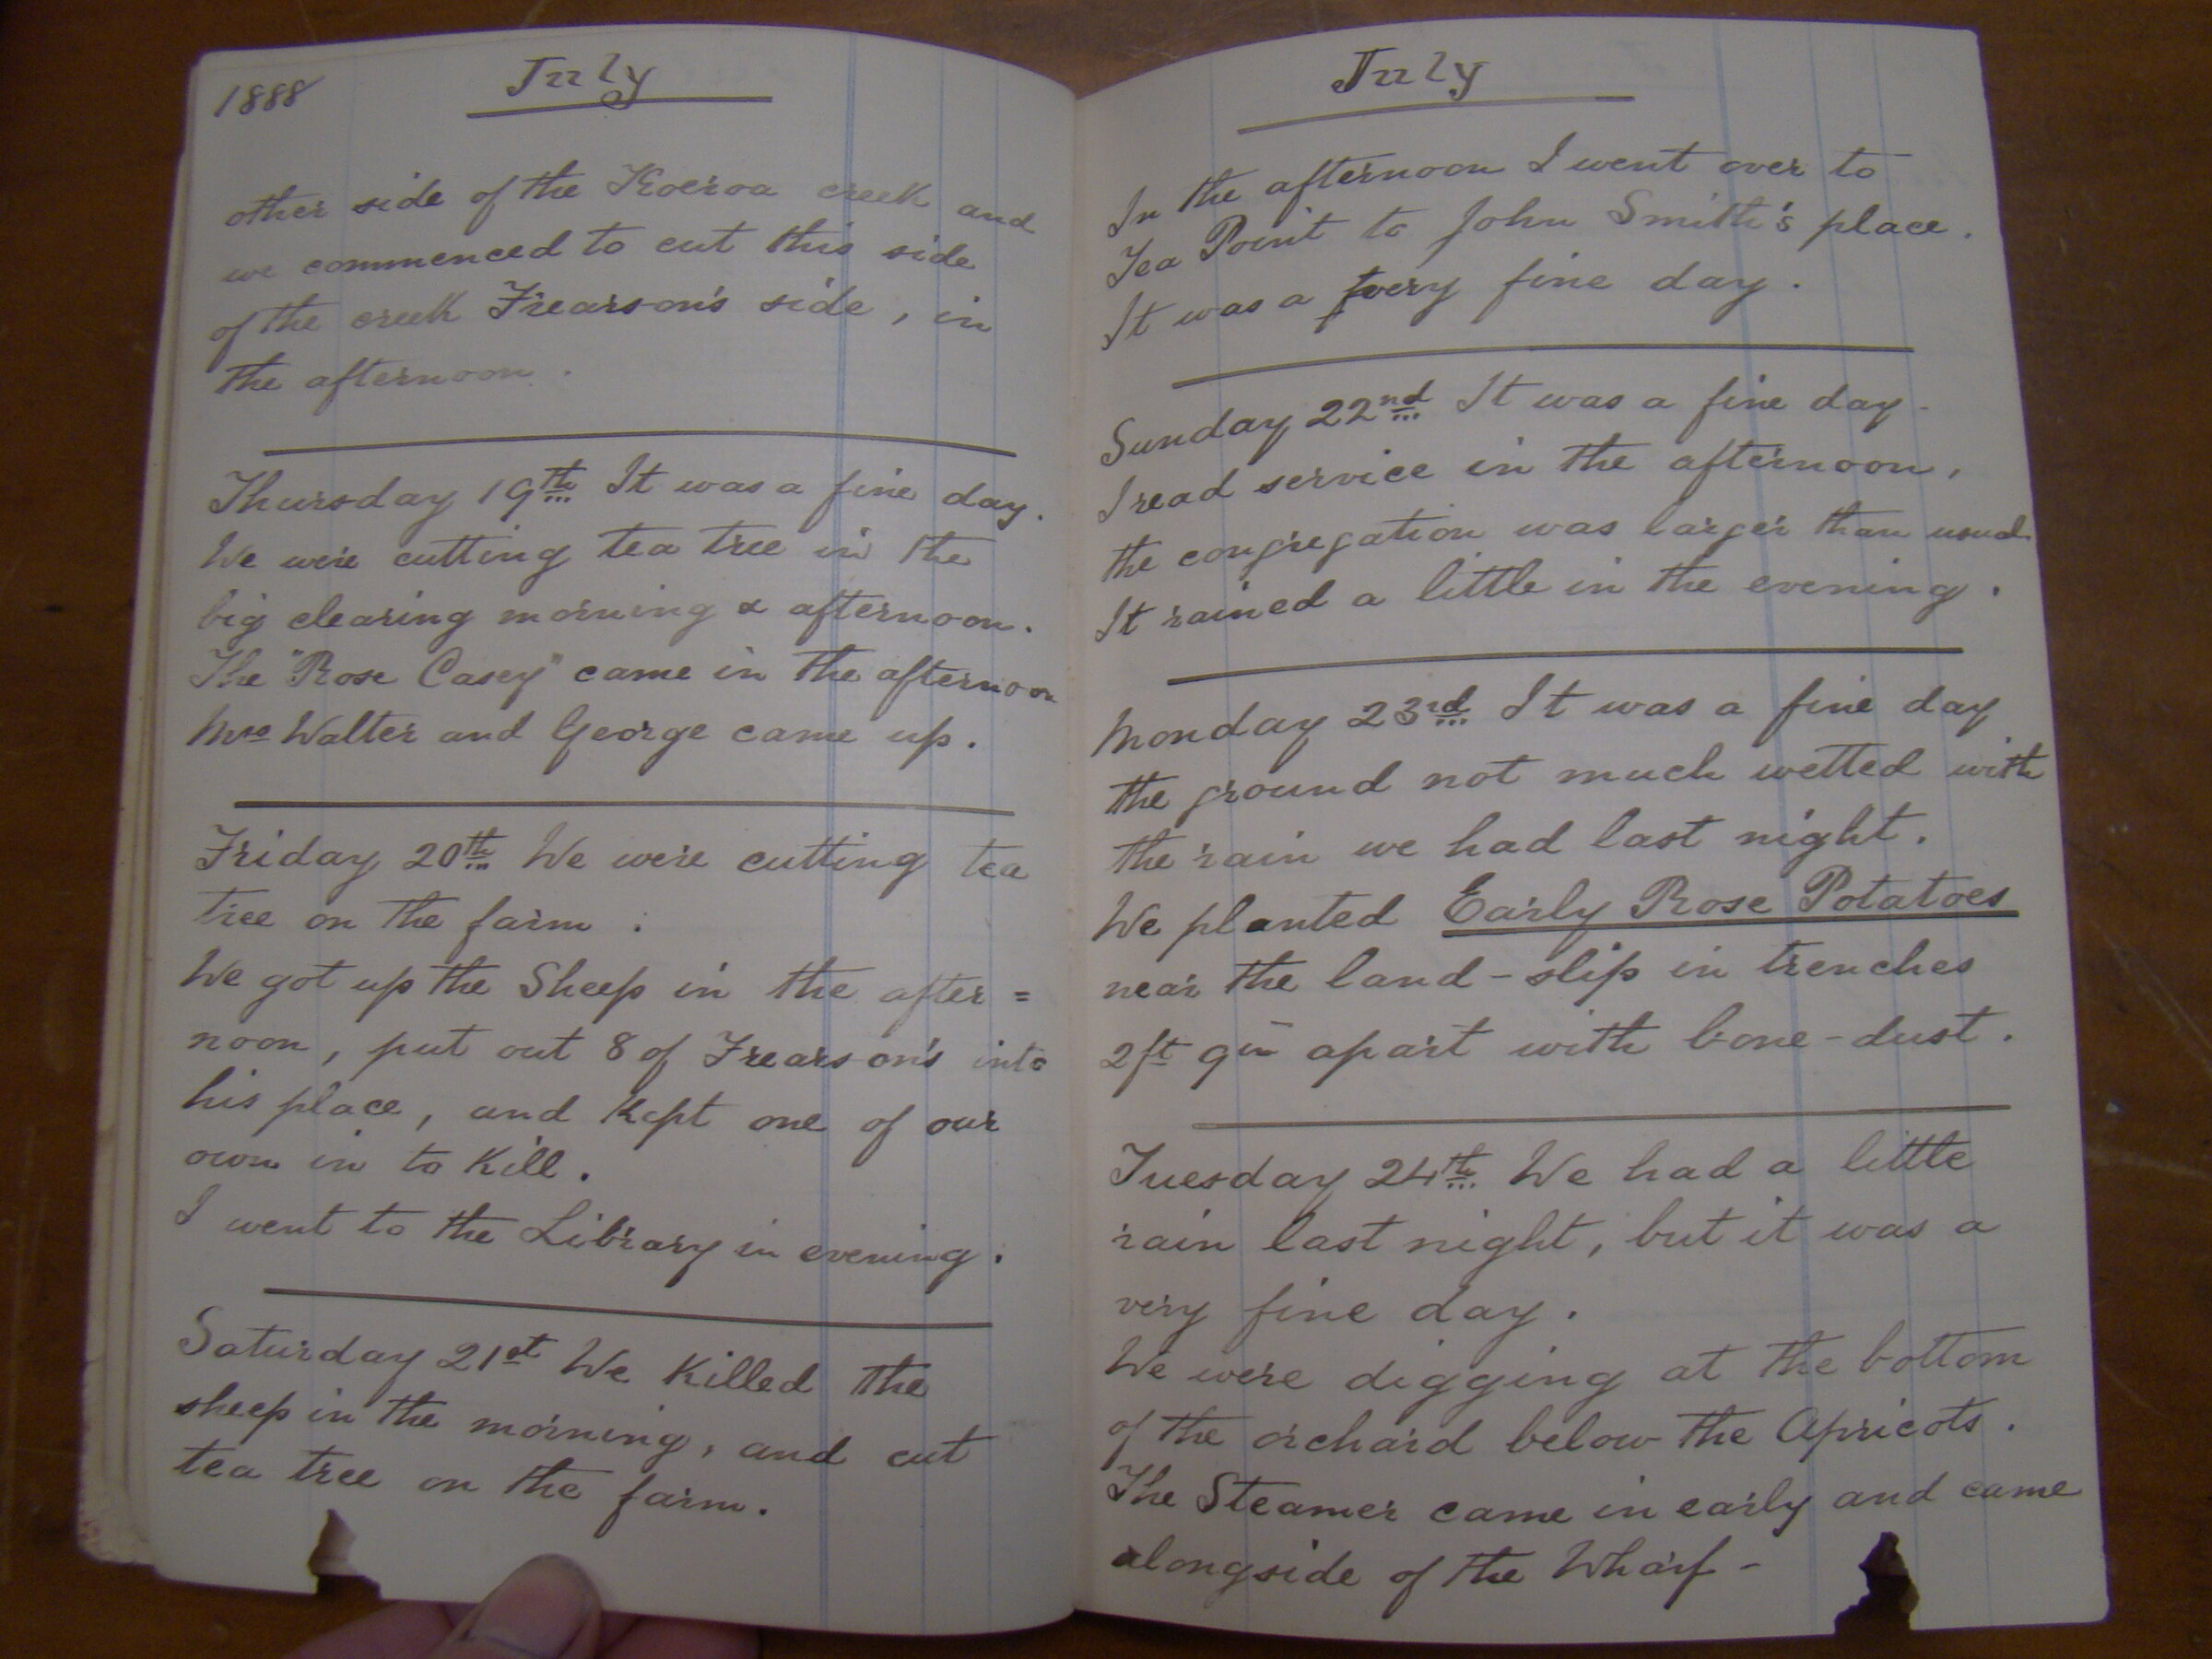 1888 July
other side of the Koeroa creek and
we commenced to cut this side
of the creek Frearson's side, in
the afternoon.
Thursday 19th It was a fine day.
We were cutting tea tree in the
big clearing morning & afternoon.
The "Rose Casey" came in the afternoon
Mrs Walter and George came up.
Friday 20th We were cutting tea
tree on the farm.
We got up the Sheep in the after=
noon, put out 8 of Frearson's into
his place, and kept one of our
own in to kill.
I went to the Library in evening.
Saturday 21st We killed the
sheep in the morning, and cut
tea tree on the farm.
July
In the afternoon I went over to
Tea Point to John Smith's place.
It was a very fine day.
Sunday 22nd It was a fine day-
I read service in the afternoon,
the congregation was larger than usual.
It rained a little in the evening.
Monday 23rd It was a fine day
the ground not much wetted with
the rain we had last night.
We planted Early Rose Potatoes
near the land-slip in trenches
2ft 9in apart with bone-dust.
Tuesday 24th We had a little
rain last night, but it was a
very fine day.
We were digging at the bottom
of the orchard below the Apricots.
The Steamer came in early and came
alongside of the Wharf-